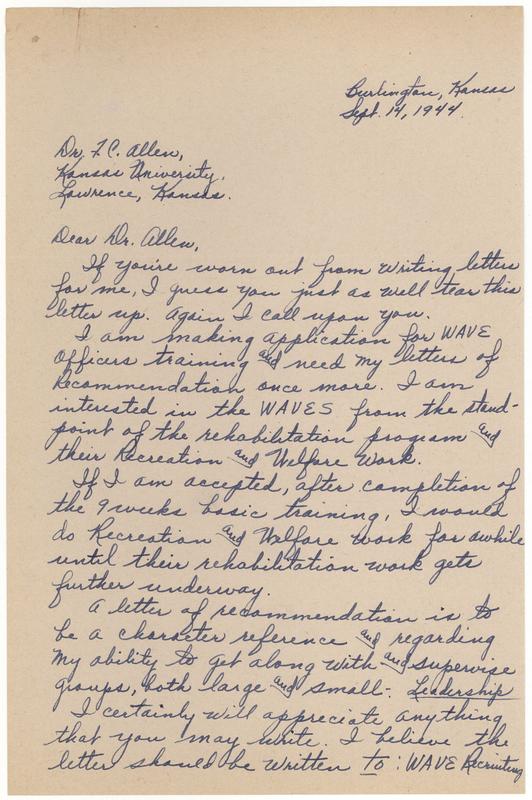 Burlington, Kansas
Sept. 14, 1944.
Dr. F.C. Allen,
Kansas University,
Lawrence, Kansas.
Dear Dr. Allen,
If you're worn out from writing letters
for me, I guess you just as well tear this
letter up. Again I call upon you.
I am making application for WAVE
Officers training and need my letters of
Recommendation once more. I am
interested in the WAVES from the stand-
point of the rehabilitation program and
their Recreation and Welfare Work.
If I am accepted, after completion of
the 9 weeks basic training, I would
do Recreation and Welfare work for awhile
until their rehabilitation work gets
further underway.
A letter of recommendation is to
be a character reference and regarding
my ability to get along with and supervise
groups, both large and small-. Leadership
I certainly will appreciate anything
that you may write. I believe the
letter should be written to: WAVE Recruiting